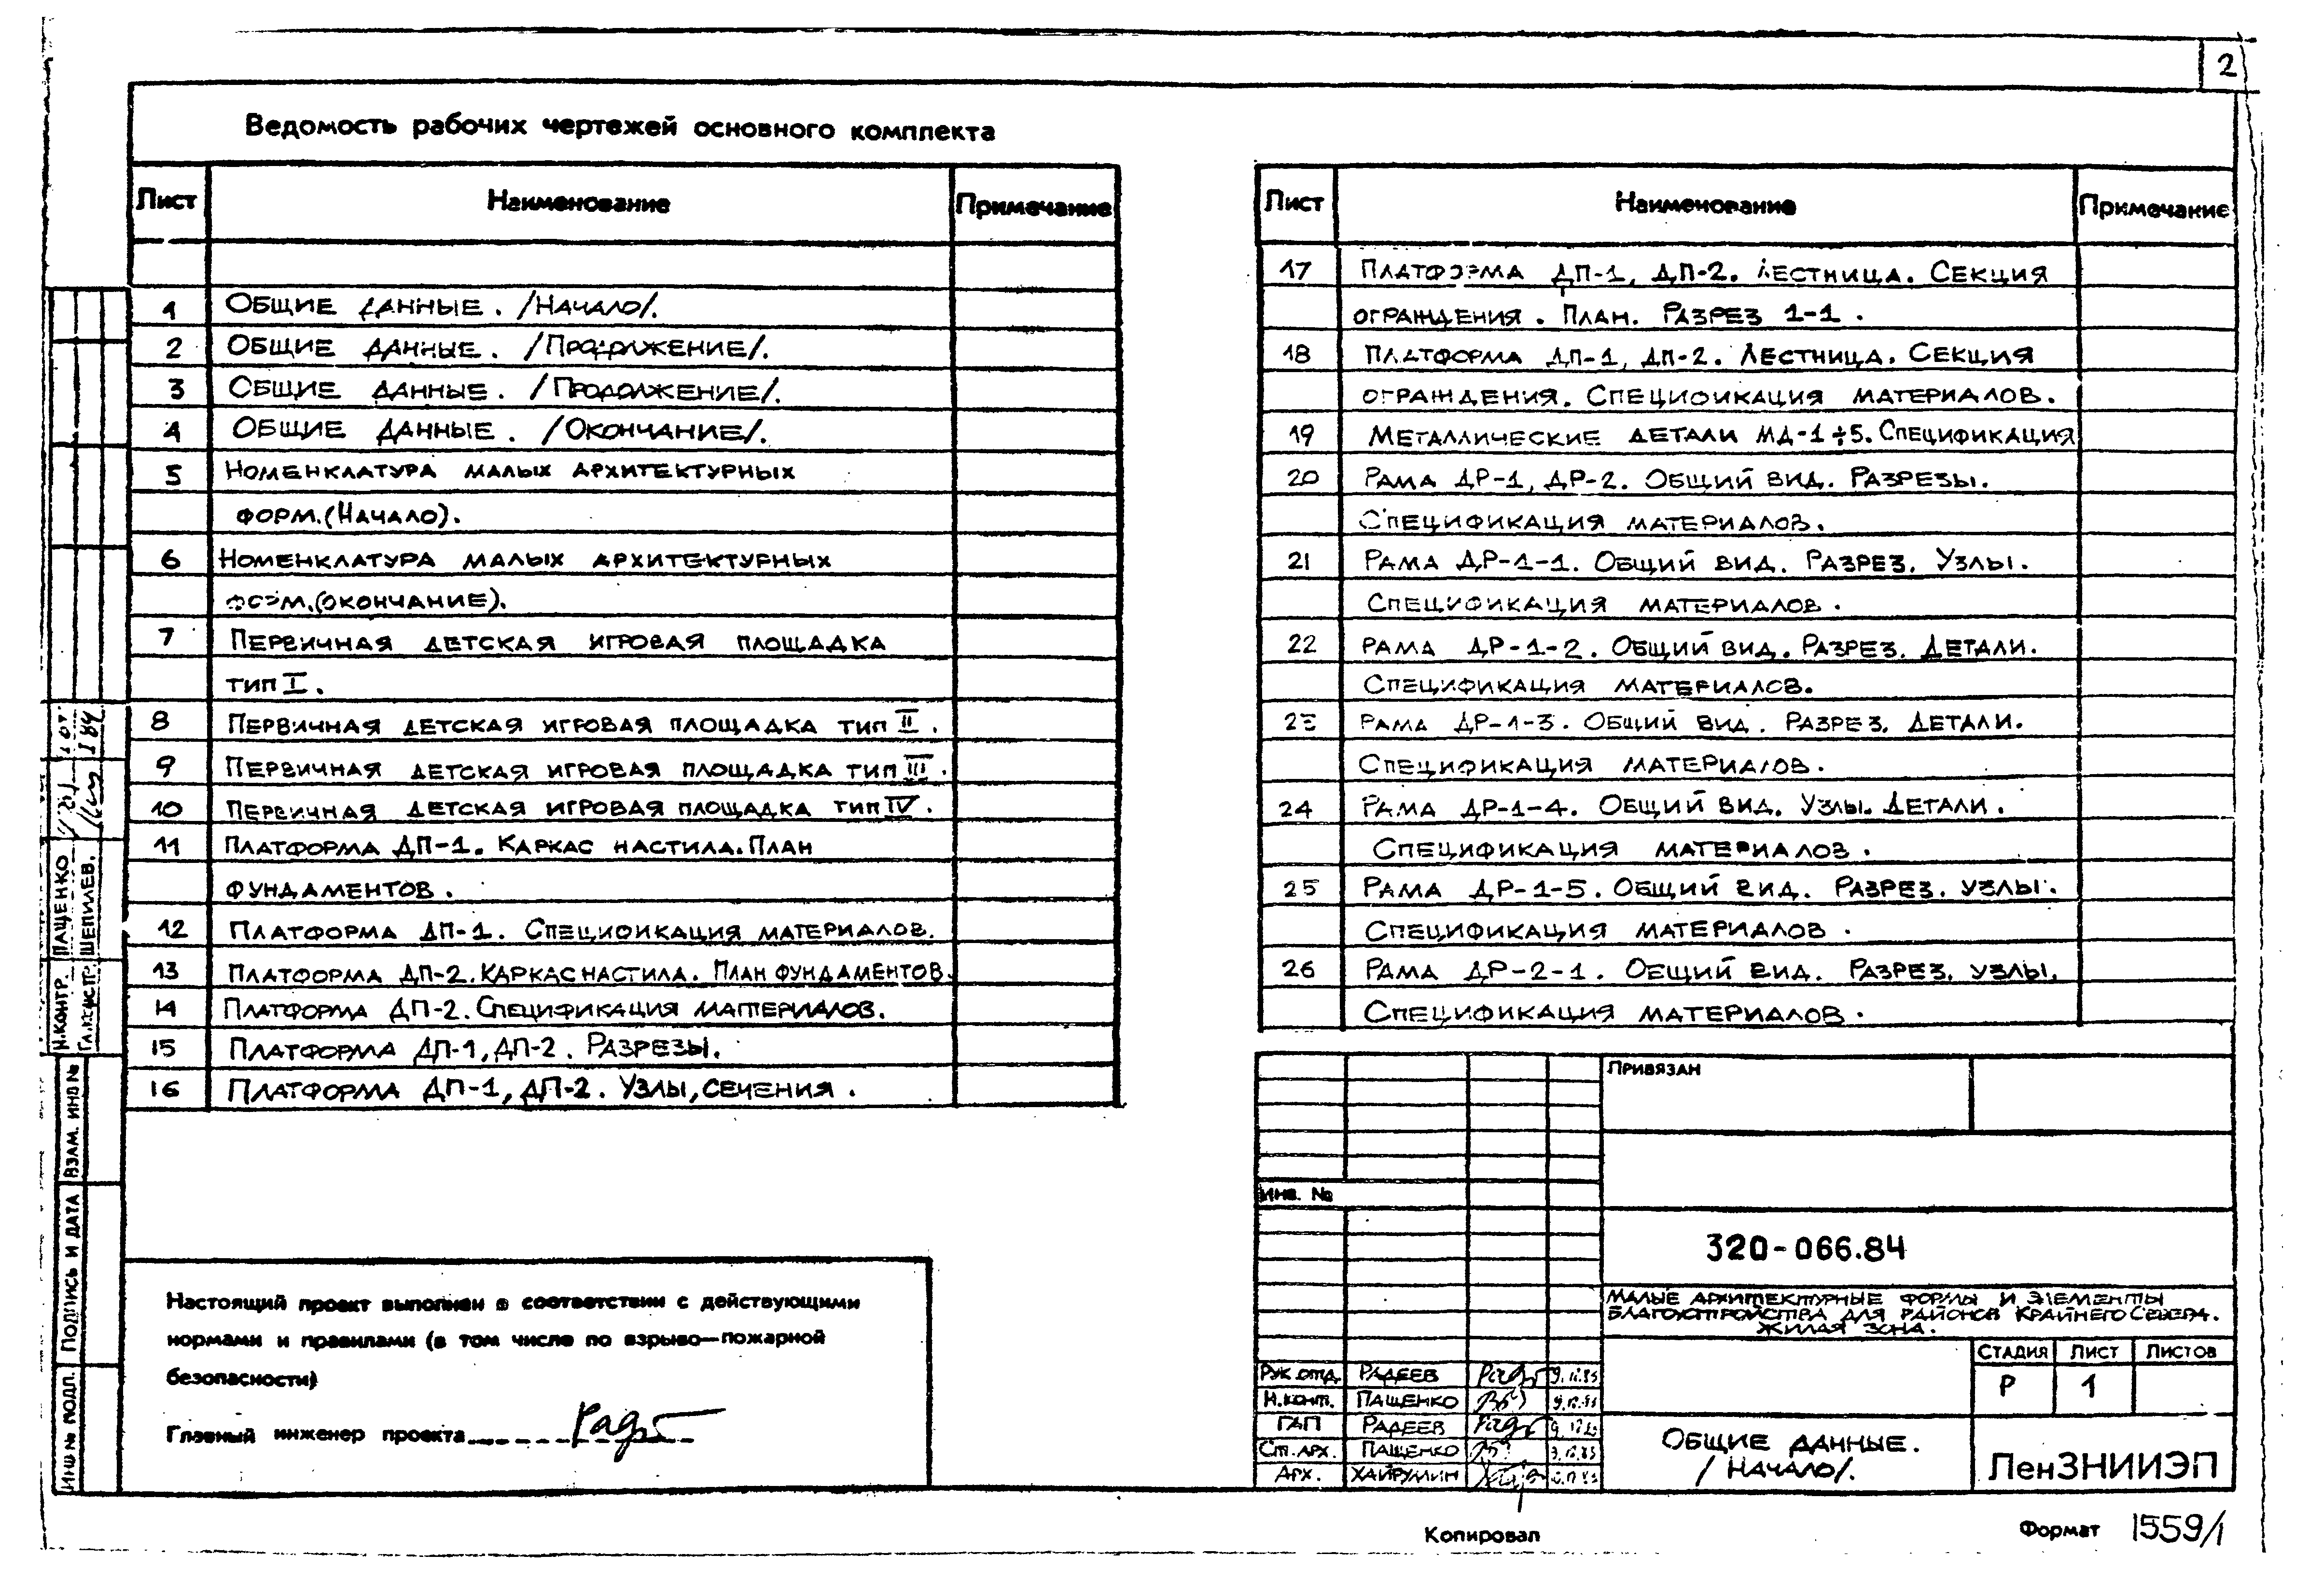 2
Ведомость рабочих чертежей основного комплекта
Лист Наименование Примечание
1 Общие данные. /Начало/.
2 Общие данные. /Продолжение/.
3 Общие данные. /Продолжение/.
4 Общие данные. /Окончание/.
5 Номенклатура малых архитектурных
форм.(Начало).
6 Номенклатура малых архитектурных
форм.(окончание).
7 Первичная детская игровая площадка
тип I.
8 Первичная детская игровая площадка тип II.
9 Первичная детская игровая площадка тип III.
10 Первичная детская игровая площадка тип IV.
11 Платформа ДП-1. Каркас настила. План
фундаментов.
12 Платформа ДП-1. Спецификация материалов.
13 Платформа ДП-2. Каркас настила. План фундаментов.
14 Платформа ДП-2. Спецификация материалов.
15 Платформа ДП-1, ДП-2. Разрезы.
16 Платформа ДП-1, ДП-2. Узлы, сечения.
Лист Наименование Примечание
17 Платформа ДП-1, ДП-2. Лестница. Секция
ограждения. План. Разрез 1-1.
18 Платформа ДП-1, ДП-2. Лестница. Секция
ограждения. Спецификация материалов.
19 Металлические детали МД-1÷5. Спецификация
20 Рама ДР-1, ДР-2. Общий вид. Разрезы.
Спецификация материалов.
21 Рама ДР-1-1. Общий вид. Разрез. Узлы.
Спецификация материалов.
22 Рама ДР-1-2. Общий вид. Разрез. Детали.
Спецификация материалов.
23 Рама ДР-1-3. Общий вид. Разрез. Детали.
Спецификация материалов.
24 Рама ДР-1-4. Общий вид. Узлы. Детали.
Спецификация материалов.
25 Рама ДР-1-5. Общий вид. Разрез. узлы.
Спецификация материалов.
26 Рама ДР-2-1. Общий вид. Разрез. узлы.
Спецификация материалов.
Н.контр. Пащенко
Шепилев.
Взам. инв №
Подпись и дата
Инв № подл.
Настоящий проект выполнен в соответствии с действующими
нормами и правилами (в том числе по взрыво-пожарной
безопасности)
Главный инженер проекта
Привязан
Инв. №
320-066.84
Малые архитектурные формы и элементы
благоустройства для районов Крайнего Севера.
Жилая зона.
Стадия Лист Листов
Р 1
Рук.отд. Радеев
Н.конт. Пащенко
ГАП Радеев
Ст.арх. Пащенко
Арх. Хайруллин
Общие данные.
/Начало/.
ЛенЗНИИЭП
Копировал
Формат 1559/1